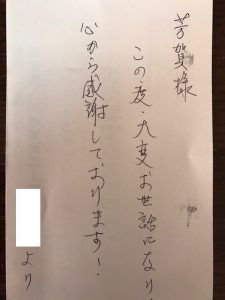 芳賀様
この度、大変お世話になり
心から感謝しております！
より